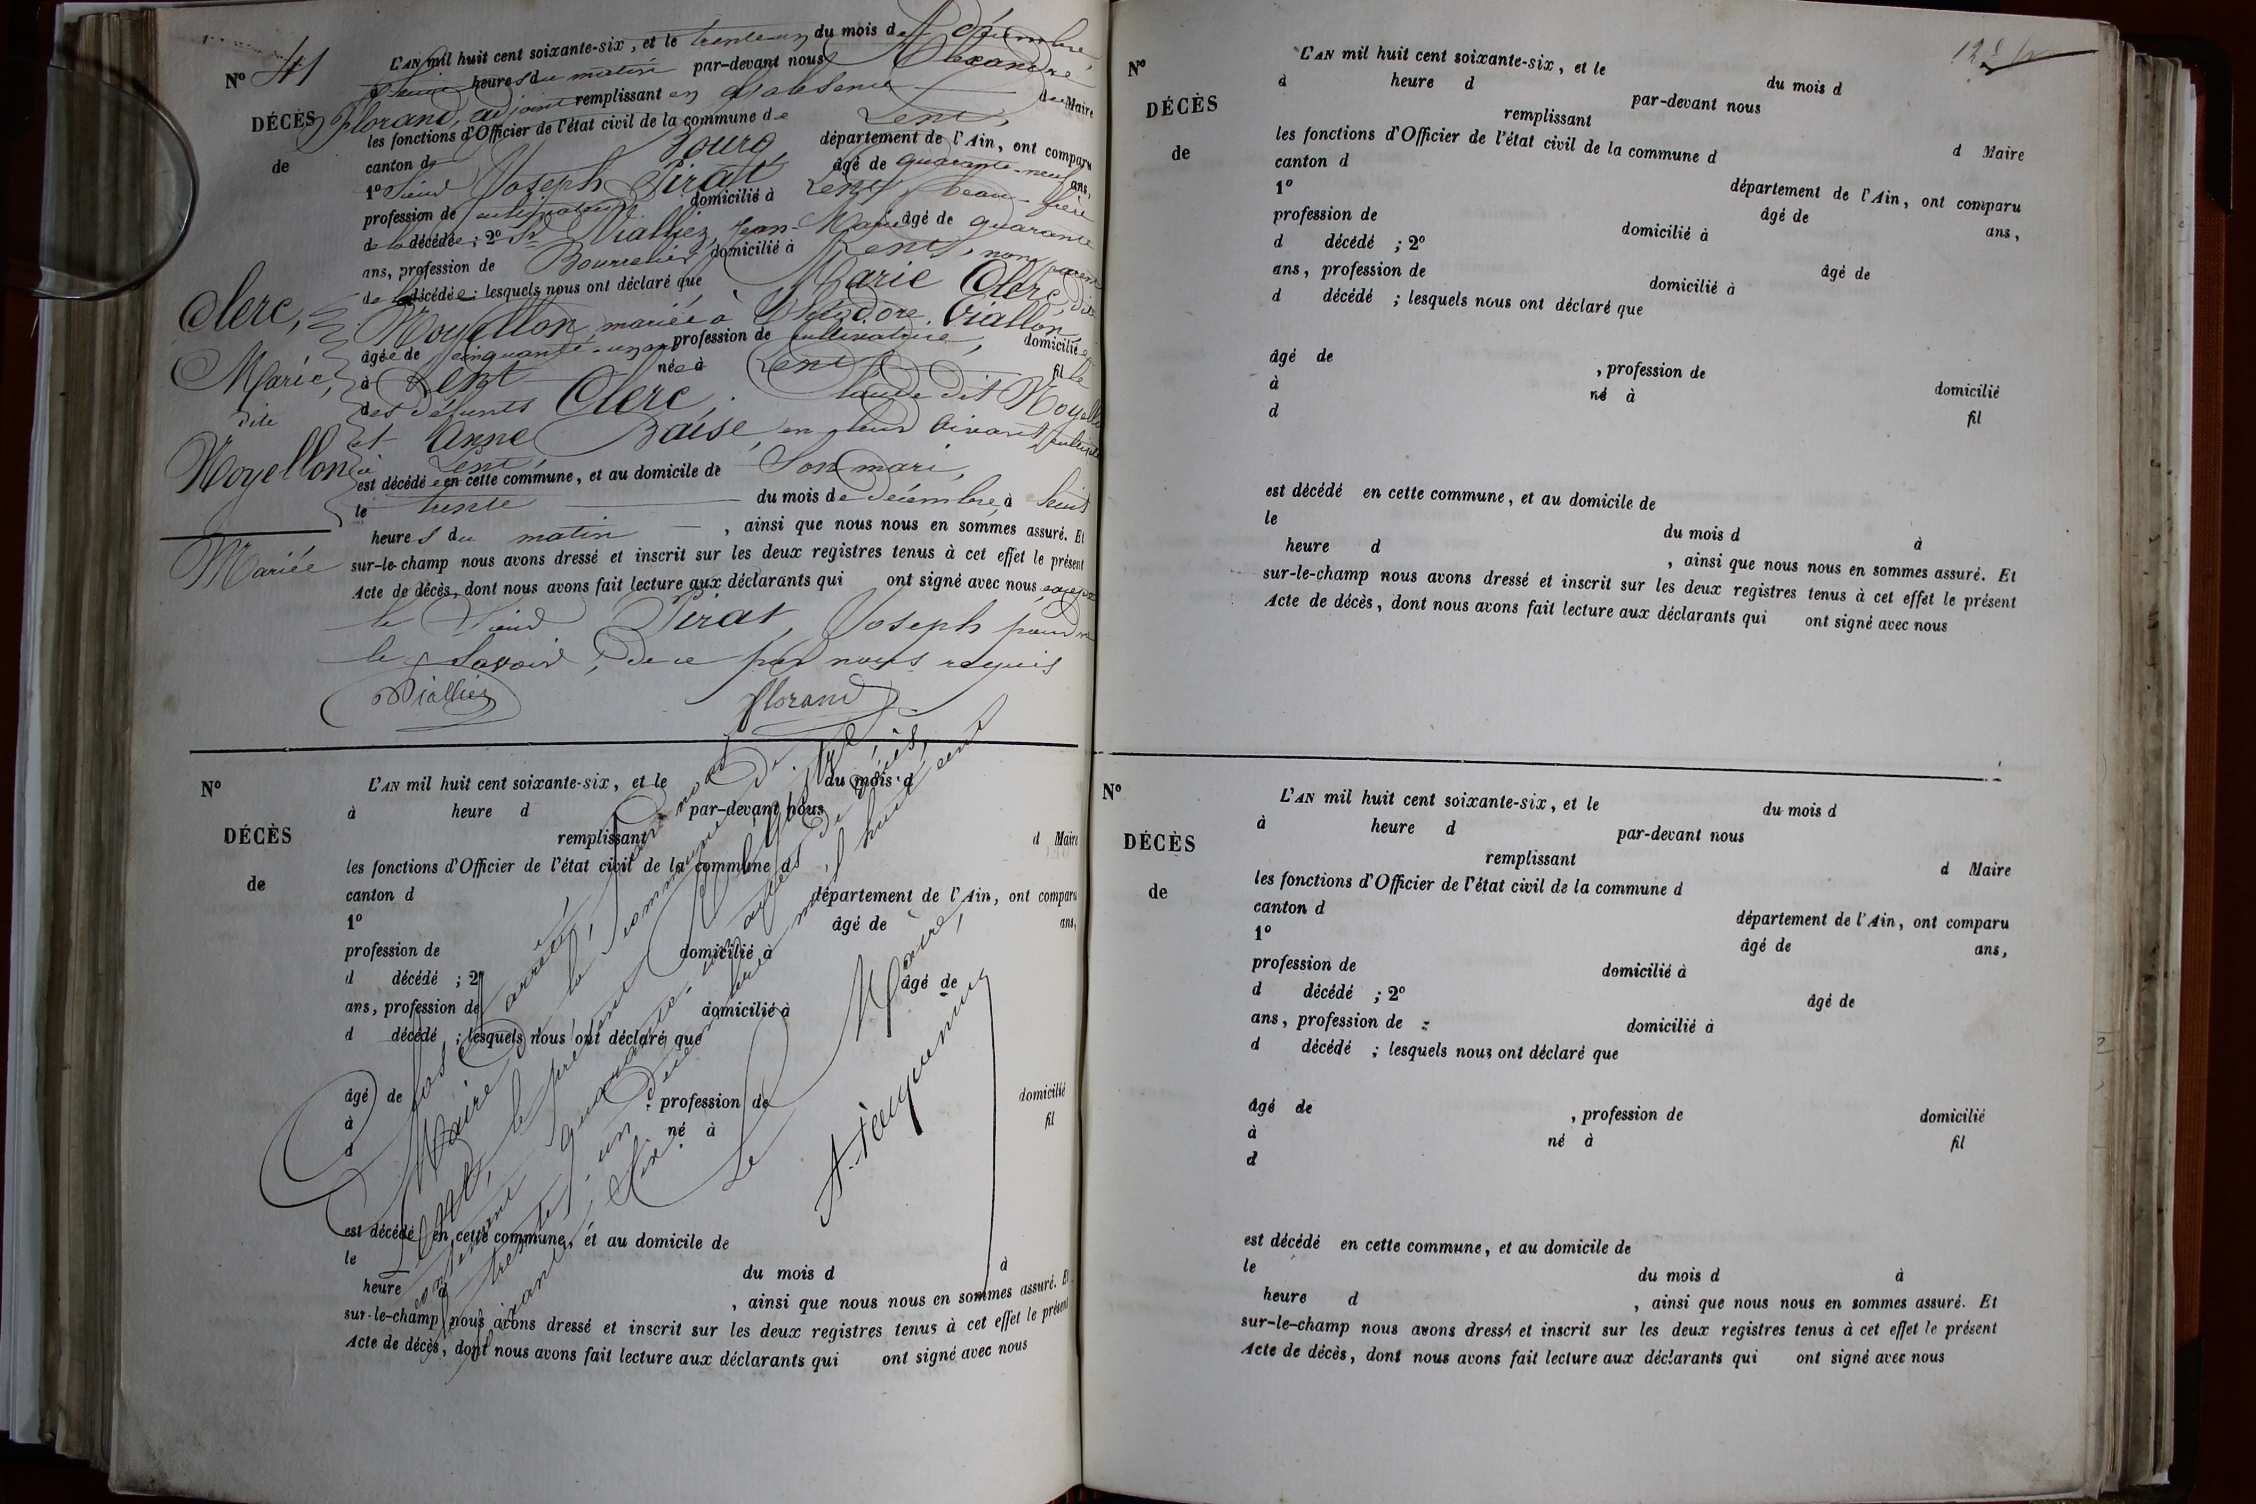 N° 41
DÉCÈS
de
Clerc,
Marie,
dite
Moyellon
Mariée
L'AN mil huit cent soixante-six, et le trente-un du mois de décembre,
à heures du matin par-devant nous Alexandre
Florand, adjoint remplissant en l'absence du Maire
les fonctions d'Officier de l'état civil de la commune de Lent,
canton de Bourg département de l'Ain, ont comparu
1° Sieur Joseph Pirat âgé de quarante-neuf ans,
profession de cultivateur domicilié à Lent, beau-frère
de la décédée; 2° Sr Vialliez, Jean-Marie âgé de quarante
ans, profession de Bourrelier domicilié à Lent, non parent
de la décédée; lesquels nous ont déclaré que Marie Clerc, dite
Moyellon mariée à Théodore Viallon,
âgée de cinquante-un ans profession de cultivatrice, domiciliée
à Lent née à Lent fille
des défunts Clerc, Claude dit Moyellon
et Anne Baise, en leur vivant
à Lent,
est décédée en cette commune, et au domicile de Son mari,
le trente du mois de décembre, à huit
heures du matin, ainsi que nous nous en sommes assuré. Et
sur-le-champ nous avons dressé et inscrit sur les deux registres tenus à cet effet le présent
Acte de décès, dont nous avons fait lecture aux déclarants qui ont signé avec nous, excepté
le Sieur Pirat, Joseph pour ne
le Savoir, de ce par nous requis
Vialliez Florand
N°
DÉCÈS
de
L'AN mil huit cent soixante-six, et le du mois d
à heure d par-devant nous
remplissant d Maire
les fonctions d'Officier de l'état civil de la commune d
canton d département de l'Ain, ont comparu
1° âgé de ans,
profession de domicilié à
d décédé ; 2° âgé de
ans, profession de domicilié à
d décédé ; lesquels nous ont déclaré que
âgé de , profession de domicilié
à né à fil
d
est décédé en cette commune, et au domicile de
le du mois d à
heure d , ainsi que nous nous en sommes assuré. Et
sur-le-champ nous avons dressé et inscrit sur les deux registres tenus à cet effet le présent
Acte de décès, dont nous avons fait lecture aux déclarants qui ont signé avec nous
Clos et arrêté, par nous
Maire de la commune de
Lent, le présent Registre
contenant quarante-un actes de décès,
le trente-un décembre mil huit cent
soixante-Six.
Le Maire,
N°
DÉCÈS
de
L'AN mil huit cent soixante-six, et le du mois d
à heure d par-devant nous
remplissant d Maire
les fonctions d'Officier de l'état civil de la commune d
canton d département de l'Ain, ont comparu
1° âgé de ans,
profession de domicilié à
d décédé ; 2° âgé de
ans, profession de domicilié à
d décédé ; lesquels nous ont déclaré que
âgé de , profession de domicilié
à né à fil
d
est décédé en cette commune, et au domicile de
le du mois d à
heure d , ainsi que nous nous en sommes assuré. Et
sur-le-champ nous avons dressé et inscrit sur les deux registres tenus à cet effet le présent
Acte de décès, dont nous avons fait lecture aux déclarants qui ont signé avec nous
N°
DÉCÈS
de
L'AN mil huit cent soixante-six, et le du mois d
à heure d par-devant nous
remplissant d Maire
les fonctions d'Officier de l'état civil de la commune d
canton d département de l'Ain, ont comparu
1° âgé de ans,
profession de domicilié à
d décédé ; 2° âgé de
ans, profession de domicilié à
d décédé ; lesquels nous ont déclaré que
âgé de , profession de domicilié
à né à fil
d
est décédé en cette commune, et au domicile de
le du mois d à
heure d , ainsi que nous nous en sommes assuré. Et
sur-le-champ nous avons dressé et inscrit sur les deux registres tenus à cet effet le présent
Acte de décès, dont nous avons fait lecture aux déclarants qui ont signé avec nous